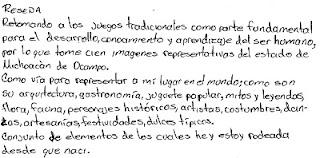 RESEÑA
Retomando a los juegos tradicionales como parte fundamental
para el desarrollo, conocimiento y aprendizaje del ser humano,
por lo que tome cien imagenes representativas del estado de
Michoacán de Ocampo.
Como vía para representar a mi lugar en el mundo; como son
su arquitectura, gastronomía, juguete popular, mitos y leyendas,
flora, fauna, personajes históricos, artistas, costumbres, dan-
zas, artesanías, festividades, dulces típicos.
Conjunto de elementos de los cuales hoy estoy rodeada
desde que nací.